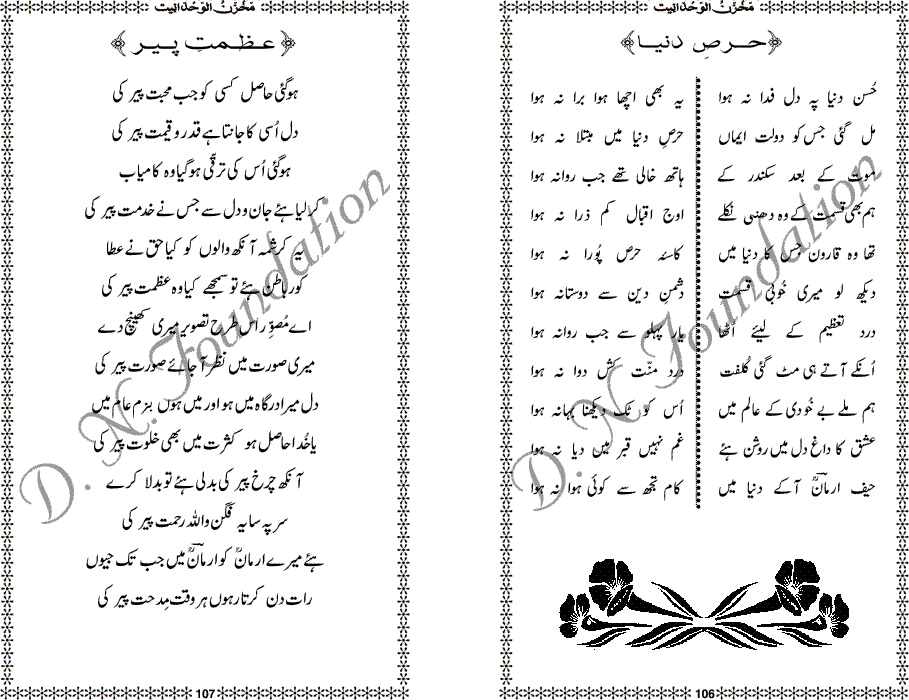 مخزن الوحدانیت
﴿ حرصِ دنیا ﴾
حُسن دنیا پہ دل فدا نہ ہوا	یہ بھی اچھا ہوا برا نہ ہوا
مل گئی جس کو دولت ایماں	حرصِ دنیا میں مبتلا نہ ہوا
موت کے بعد سکندر کے	ہاتھ خالی تھے جب روانہ ہوا
ہم بھی قسمت کے وہ دھنی نکلے	اوج اقبال کم ذرا نہ ہوا
تھا وہ قارون جس کا دنیا میں	کاسئہ حرص پُورا نہ ہوا
دیکھ لو میری خُوبیٔ قسمت	دشمنِ دین سے دوستانہ ہوا
درد تعظیم کے لیئے اُٹھا	یار پہلو سے جب روانہ ہوا
اُنکے آتے ہی مٹ گئی کُلفت	درد منّت کش دوا نہ ہوا
ہم ملے بے خُودی کے عالم میں	اُس کو تک دیکھنا بہانہ ہوا
عشق کا داغ دل میں روشن ہئے	غم نہیں قبر میں دیا نہ ہوا
حیف ارمانؔ آکے دنیا میں	کام تجھ سے کوئی ہوا نہ ہوا
106
مخزن الوحدانیت
﴿ عظمتِ پیر ﴾
ہوگئی حاصل کسی کو جب محبت پیر کی
دل اُسی کا جانتا ہے قدر و قیمت پیر کی
ہوگئی اُس کی ترقّی ہو گیا وہ کامیاب
کرلیا ہئے جان و دل سے جس نے خدمت پیر کی
یہ کرشمہ آنکھ والوں کو کیا حق نے عطا
کور باطن ہئے تو سمجھے کیا وہ عظمت پیر کی
اے مُصوّر اس طرح تصویر میری کھینچ دے
میری صورت میں نظر آجائے صورت پیر کی
دل میرا درگاہ میں ہو اور میں ہوں بزم عام میں
یا خُدا حاصل ہو کثرت میں بھی خلوت پیر کی
آنکھ چرخ پیر کی بدلی ہئے تو بدلا کرے
سر پہ سایہ فگن واللہ رحمت پیر کی
ہئے میرے ارمانؔ کو ارمانؔ میں جب تک جیوں
رات دن کرتا رہوں ہر وقت مِدحت پیر کی
107
D. N. Foundation
D. N. Foundation